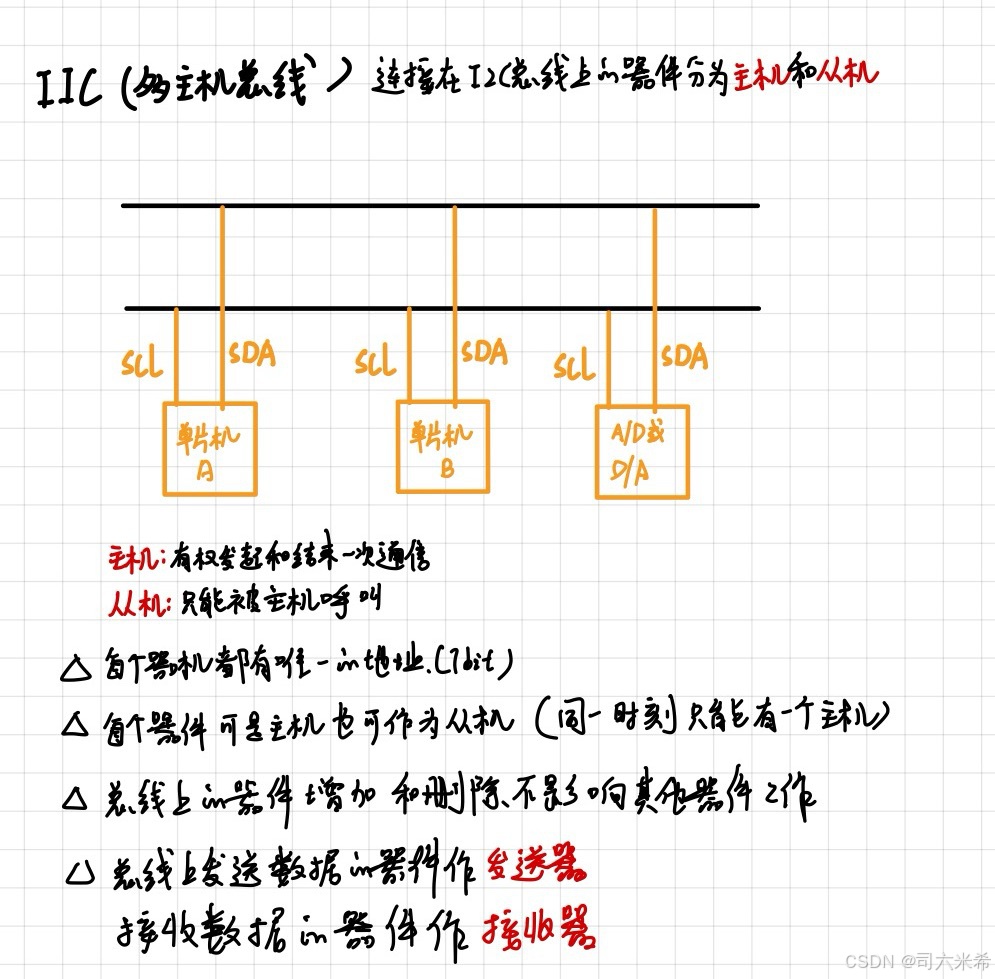 IIC (多主机总线) 连接在I2C总线上的器件分为主机和从机
SCL SDA SCL SDA SCL SDA
单片机 A
单片机 B
A/D或 D/A
主机:有权发起和结束一次通信
从机:只能被主机呼叫
△ 每个器机都有唯一的地址.(7bit)
△ 每个器件可是主机也可作为从机 (同一时刻只能有一个主机)
△ 总线上的器件增加和删除、不影响其他器件工作
△ 总线上发送数据的器件作发送器
接收数据的器件作接收器
CSDN @司六米希